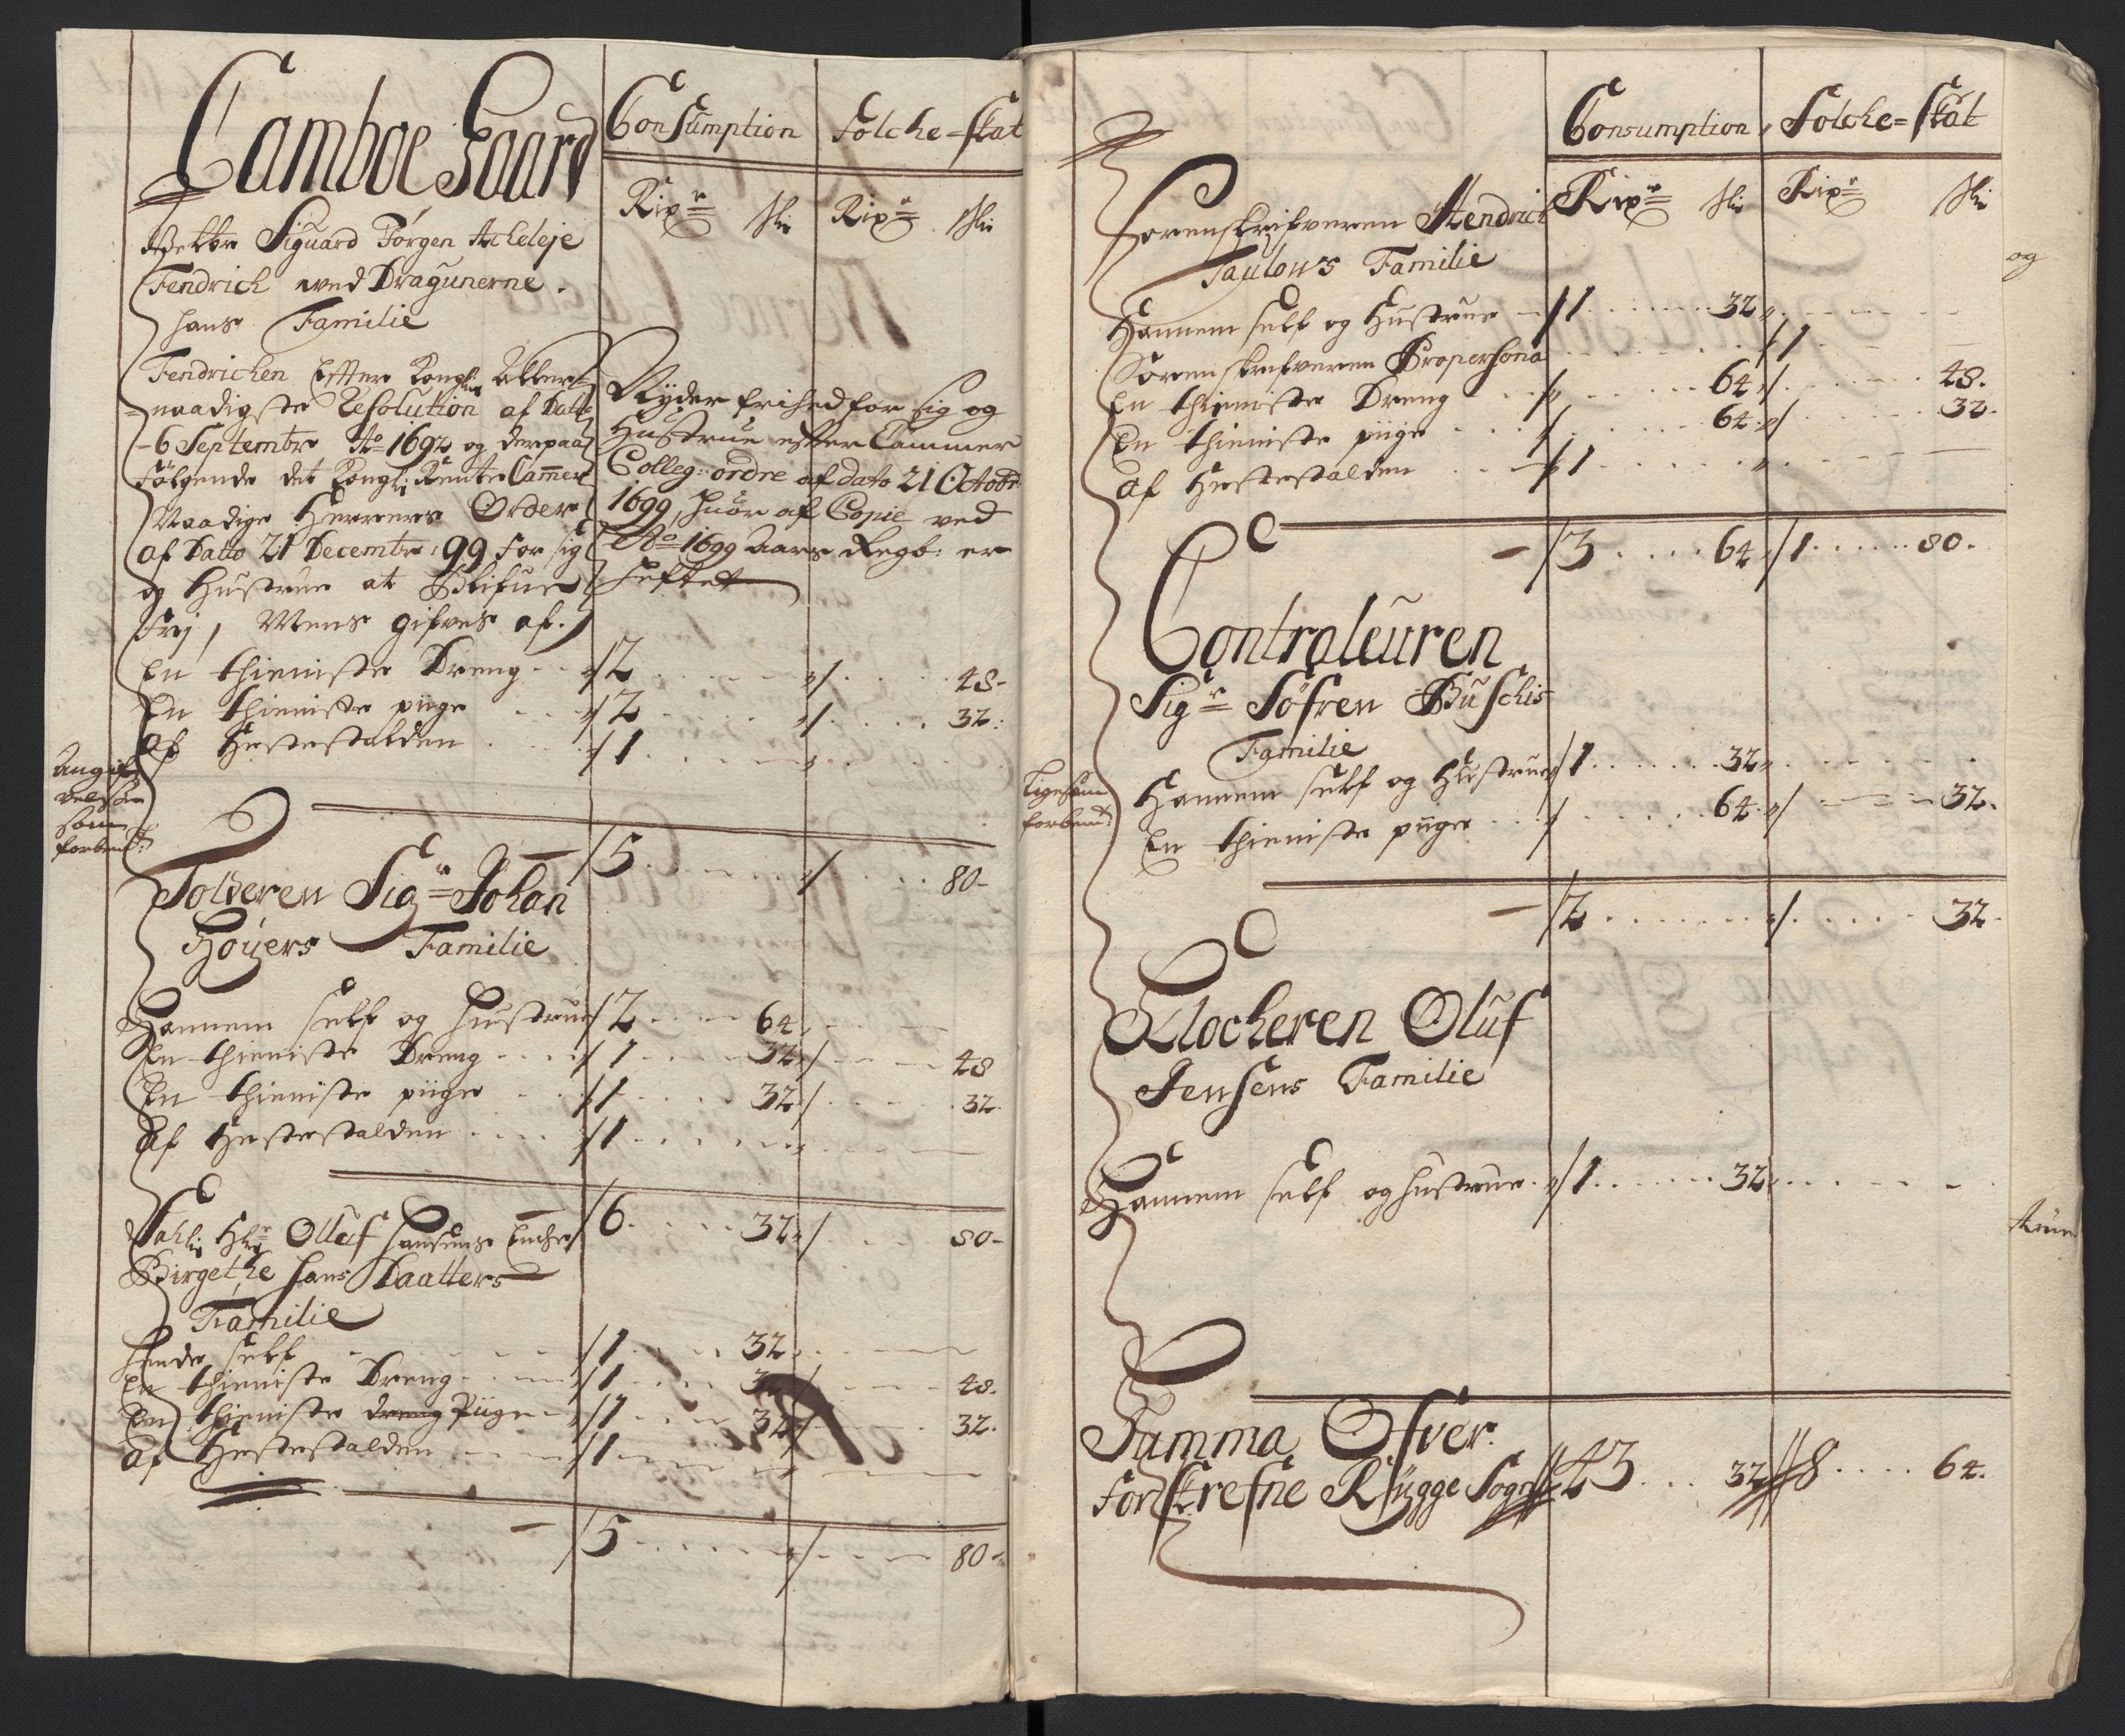 Camboe Gaard
Consumption Folche=skat
Rixr ski Rixr ski
Siguard Jørgen Acheleje
Fendrich ved Dragunerne.
hans Familie
Fendrichen Effter Kongl. Aller-
naadigste Resolution af Dato
6 Septembr Ao 1692 og derpaa
følgende det Kongl. Rente Cammer
Naadige Herrers Order
af Dato 21 Decembr: 99 for sig
og Hustrue at Blifue
frj, Mens gifves af.
Nyder frihed for sig og
Hustrue efter Cammer
Colleg: ordre af dato 21 Octobr:
1699, huor af Copie ved
Ao 1699 Aars Regb: er
heftet
En thieniste Dreng 2 48
En thieniste piige 2 32
Af Hestestalden 1
som
forbemt:
5 80
Tolderen Sigr Johan
Høyers Familie
Hannem self og Hustrue 2 64
En thieniste Dreng 1 32 48
En thieniste piige 1 32 32
Af Hestestalden 1
6 32 80
Sahlig Hr Oluf Hansens Enche
Birgethe Hans Daatters
Familie
Hinde self 1 32
En thieniste Dreng 1 32 48
En thieniste dreng Piige 1 32 32
Af Hestestalden 1
5 80
Consumption Folche=skat
Rixr ski Rixr ski
Sorenskrifveren Hendrich
Taulows Familie
Hannem self og Hustrue 1 32
Sorenskrifveren Propersona 1
En thieniste Dreng 64 48
En thieniste piige 64 32
Af Hestestalden 1
3 64 1 80
Contraleuren
Sigr Søfren Buschis
Familie
Ligesom
forbemt:
Hannem self og Hustrue 1 32
En thieniste piige 64 32
2 32
Klocheren Oluf
Jensens Familie
Hannem self og hustrue 1 32
Summa Ofver
forskrefne Rygge Sogn 43 32 8 64
og